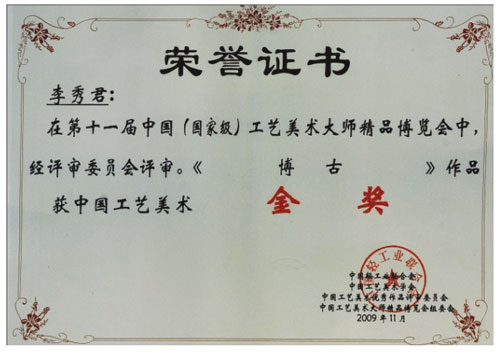 荣誉证书
李秀君：
在第十一届中国（国家级）工艺美术大师精品博览会中，
经评审委员会评审。《 博古 》作品
获中国工艺美术 金奖
中国轻工业联合会
中国工艺美术学会
中国工艺美术优秀作品评审委员会
中国工艺美术大师精品博览会组委会
2009年11月